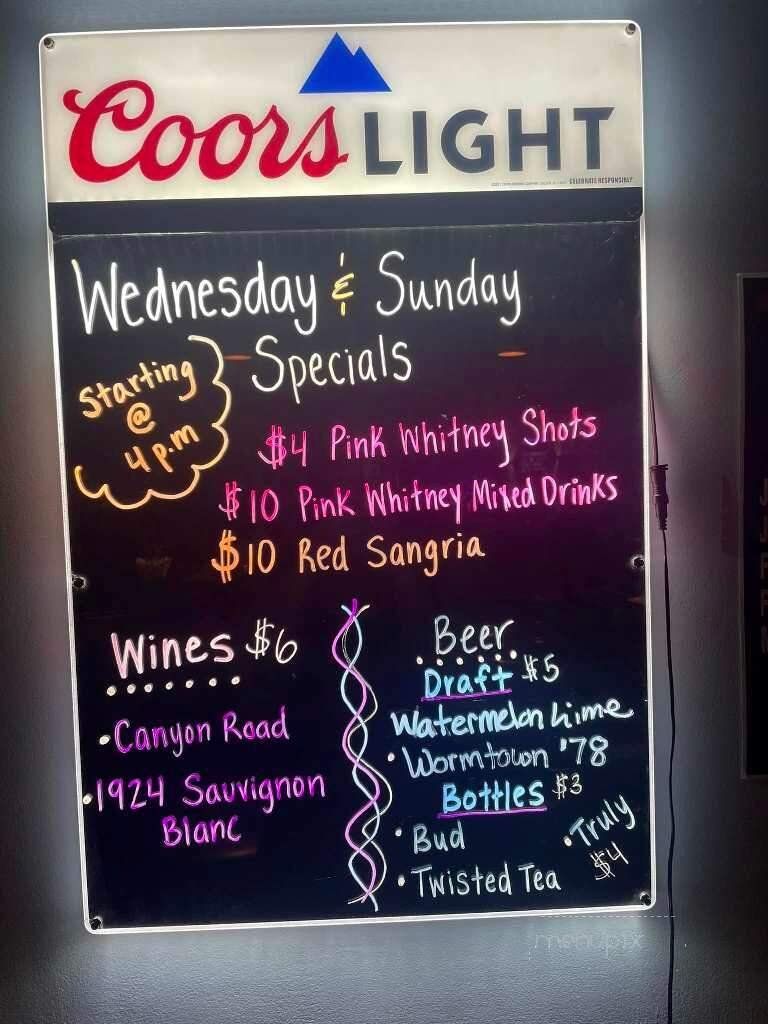 Coors LIGHT
CELEBRATE RESPONSIBLY
Wednesday & Sunday
Specials
Starting
@
4 p.m
$4 Pink Whitney Shots
$10 Pink Whitney Mixed Drinks
$10 Red Sangria
Wines $6
• Canyon Road
• 1924 Sauvignon
Blanc
Beer
Draft $5
Watermelon Lime
• Wormtown '78
Bottles $3
• Bud
• Twisted Tea
• Truly
$4
menupix